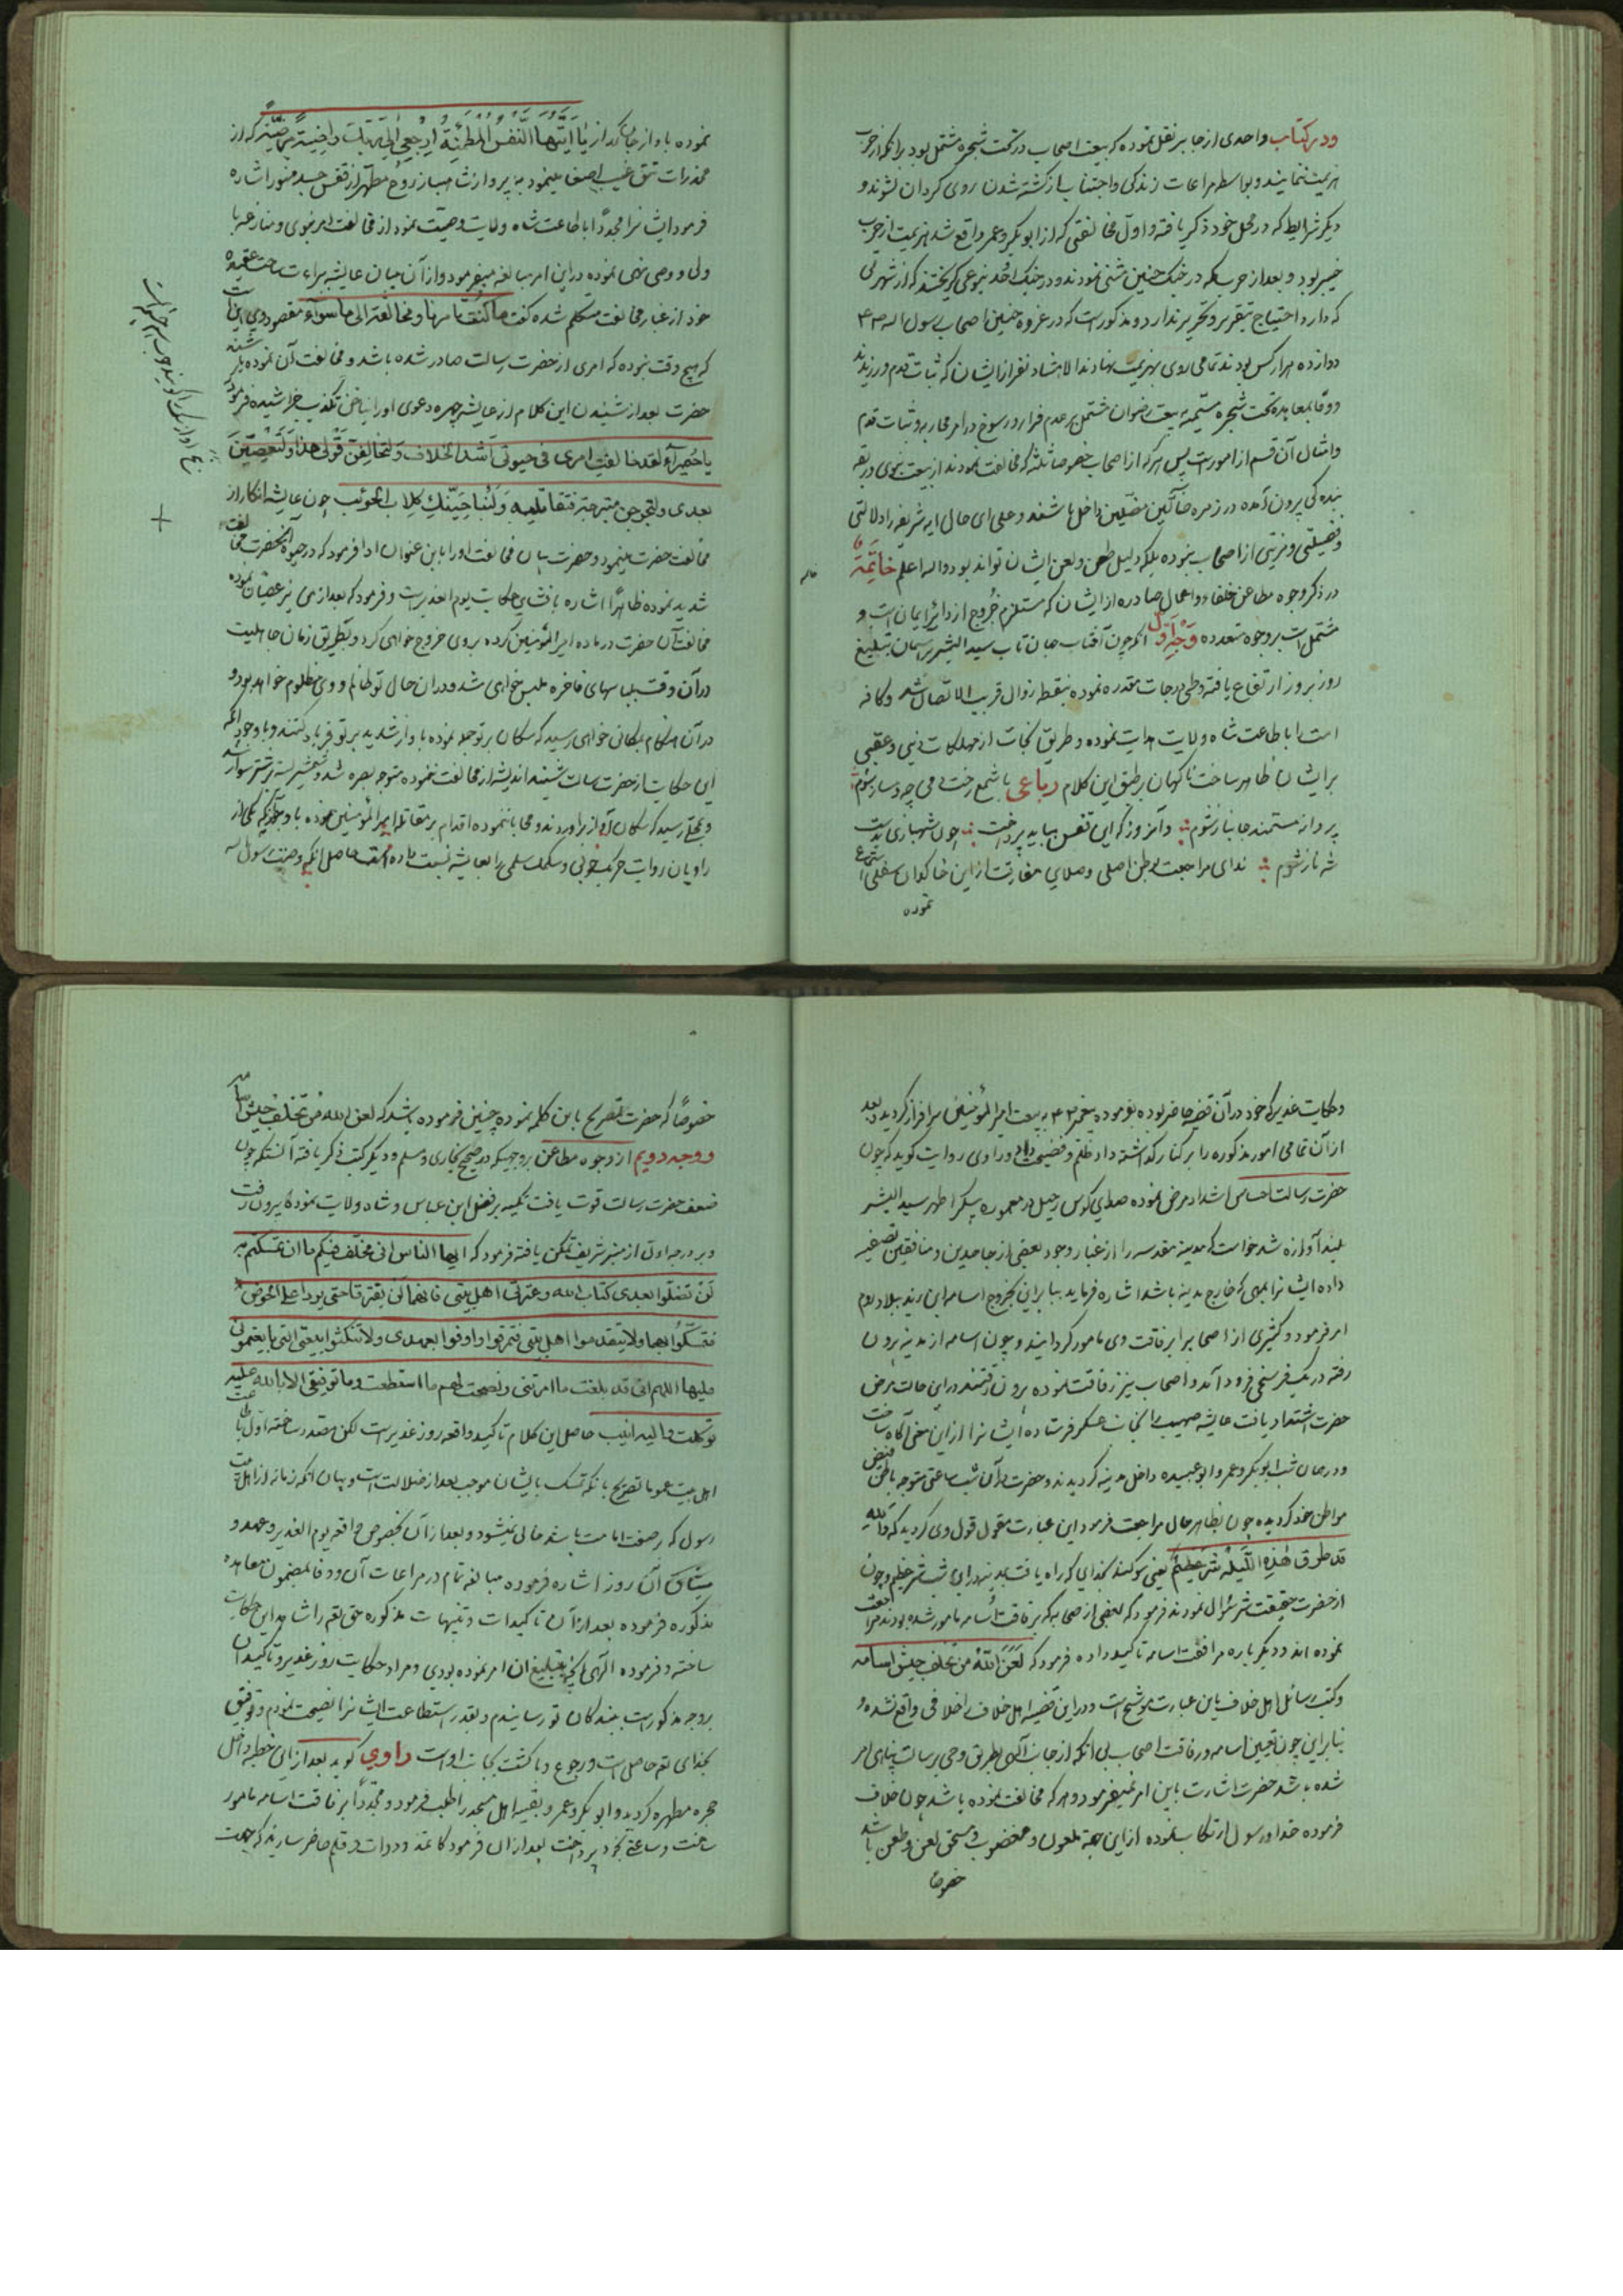 ودر کتاب واحدی از جابر نقل نموده که بیعت اصحاب در تحت شجره مشتمل بود برانکه از حرب
هزیمت ننمایند و بواسطه مراعات زندگی واجتناب از کشته شدن روی کردان نشوند و
دیکر شرایط که در محل خود ذکر یافته واول مخالفتی که از ابوبکر وعمر واقع شد هزیمت از حرب
خیبر بود و بعد از حرب بلکه در جنک حنین نمودند ودر جنک احد بنوعی کریختند که از شهرتی
که دارد احتیاج بتقریر وتحریر ندارد ومذکور است که در غزوه حنین اصحاب رسول الله
دوازده هزار کس بودند تمامی روی بهزیمت نهادند الا هشتاد نفر از ایشان که ثبات قدم ورزیدند
ووفا بمعاهده تحت شجره مسمی به بیعت رضوان مشتمل بر عدم فرار ورسوخ در امر محاربه وثبات قدم
وامثال آن قسم از امور است پس هر که از اصحاب خصوصا ثلثه که مخالفت نمودند از بیعت نبوی در
بندگی بیرون آمده در زمره ضالین مضلین داخل باشند وعلی ای حال ایه شریفه را دلالتی
وفضیلتی ومزیتی از اصحاب نبوده بلکه دلیل طعن ولعن ایشان تواند بود والله اعلم خاتمة
در ذکر وجوه مطاعن خلفا واعمال صادره از ایشان که مستلزم خروج از دائره ایمان است و
مشتمل است بر وجوه متعدده وجه اول انکه چون آفتاب جهان تاب سید البشر بر اسمان تبلیغ
روز بروز ارتفاع یافته وطی درجات مقدره نموده بنقطه زوال قریب الاتصال شد وکافه
امت را باطاعت شاه ولایت هدایت نموده وطریق نجات از مهلکات دنیی وعقبی
بر ایشان ظاهر ساخت ناکهان بر طبق این کلام رباعی با شمع رخت دمی چو دمساز شوم
پروانه مستمند جانباز شوم وآنروز که این قفس بباید پرداخت چون شهبازی بدست
شه باز شوم ندای مراجعت بوطن اصلی وصلای مفارقت از این خاکدان سفلی استماع
نموده
نموده با واز جان کداز یا ایتها النفس المطمئنة ارجعی الی ربک راضیة مرضیة که از
مخدرات تتق غیب اصغا مینمود به پرواز شاهباز روح مطهر از قفس جسد منور اشاره
فرمود ایشانرا مجددا باطاعت شاه ولایت وصیت نمود از مخالفت امر نبوی ومنازعه با
ولی و وصی نهی نموده در این امر مبالغه میفرمود واز آن میان عایشه براءت ساحت عقیده
خود از غبار مخالفت متکلم شده کفت ما کنت مرنا ومخالفة الی ما سواه مقصود وی این است
که هیچ وقت نبوده که امری از حضرت رسالت صادر شده باشد ومخالفت آن نموده باشند
حضرت بعد از شنیدن این کلام از عایشه چهره دعوی او را بناخن تکذیب خراشیده فرمود
یا حمیراء لقد خالفت امری فی حیوتی اشد الخلاف ولتخالفن قولی هذا ولتعصین
بعدی ولتخرجن متبرجة فتقاتلیه ولتنباحینک کلاب الحوئب چون عایشه انکار از
مخالفت حضرت مینمود وحضرت بیان مخالفت او را باین عنوان ادا فرمود که در حیوة آنحضرت مخالفت
شدید نموده ظاهرا اشاره بافشای حکایت یوم الغدیر است وفرمود که بعد از من نیز عصیان نموده
مخالفت آن حضرت در ماده امیر المؤمنین کرده بروی خروج خواهی کرد وبطریق زمان جاهلیت
در آن وقت بلباسهای فاخره ملبس خواهی شد ودر ان حال تو ظالم و وی مظلوم خواهد بود و
در آن هنکام بمکانی خواهی رسید که سکان بر تو حمله نموده با واز شدید بر تو فریاد کنند وبا وجود انکه
این حکایت از حضرت رسالت شنیده اندیشه از مخالفت ننموده متوجه بصره شد وشمشیر بسته بر شتر سوار شد
و بمحلی رسید که سکان آواز براوردند ومحابا ننموده اقدام بر مقاتله امیر المؤمنین نموده با وجود انکه یکی از
راویان روایت حربک حربی وسلمک سلمی را بعایشه نسبت داده اند حاصل انکه وصیت رسول الله
وحکایت غدیر که خود در آن قضیه حاضر بوده بفرموده پیغمبر به بیعت امیر المؤمنین سرافراز کردید بعد
از آن تمامی امور مذکوره را بر کنار کذاشته داد ظلم وفضیحت داد وراوی روایت کوید که چون
حضرت رسالت احساس اشتداد مرض نموده صدای کوس رحیل در معموره پیکر اطهر سید البشر
بلند آوازه شد خواست که مدینه مقدسه را از غبار وجود بعضی از حاسدین ومنافقین تصفیه
داده ایشانرا بمهمی که خارج مدینه باشد اشاره فرماید بنابراین بخروج اسامه ابن زید ببلاد روم
امر فرمود وکثیری از اصحاب را برفاقت وی مامور کردانید وچون اسامه از مدینه بیرون
رفته در یک فرسخی فرود آمد واصحاب نیز رفاقت نموده بیرون رفتند در این حالت مرض
حضرت اشتداد یافت عایشه صهیب را بجانب عسکر فرستاده ایشانرا از این معنی آکاه ساخت
ودر همان شب ابوبکر وعمر وابو عبیده داخل مدینه کردیدند وحضرت در آن شب ساعتی متوجه باطن فیض
مواطن خود کردیده چون بظاهر حال مراجعت فرمود این عبارت مقول قول وی کردید که والله
قد طرق هذه اللیلة شر عظیم یعنی سوکند بخدای که راه یافت بمدینه در این شب شر عظیم وچون
از حضرت حقیقت شر سؤال نمودند فرمود که بعضی از صحابه که برفاقت اسامه مامور شده بودند مراجعت
نموده اند ودیکر باره مرافقت اسامه تاکید داده فرمود که لعن الله من تخلف جیش اسامه
وکتب رسائل اهل خلاف باین عبارت موشح است ودر این قضیه اهل خلاف را خلافی واقع نشده و
بنابراین چون تعیین اسامه ورفاقت اصحاب بی انکه از جانب آلهی بطریق وحی برسالت پناهی امر
شده باشد حضرت اشارت باین امر نمیفرمود وهر که مخالفت نموده باشد چون خلاف
فرموده خدا ورسول ارتکاب نموده از این جهة ملعون ومغضوب ومستحق لعن وطعن باشد
خصوصا
خصوصا که حضرت تصریح باین کلمه نموده چنین فرموده باشد که لعن الله من تخلف جیش اسامه
ووجه دویم از وجوه مطاعن بر وجهیکه در صحیح بخاری ومسلم ودیکر کتب ذکر یافته آنستکه چون
ضعف حضرت رسالت قوت یافت تکیه بر فضل ابن عباس وشاه ولایت نموده بیرون رفت
وبر درجه اول از منبر شریف تمکن یافته فرمود که ایها الناس انی مخلف فیکم ما ان تمسکتم به
لن تضلوا بعدی کتاب الله وعترتی اهل بیتی فانهما لن یفترقا حتی یردا علی الحوض
فتمسکوا بهما ولا تتقدموا اهل بیتی فتمرقوا واوفوا بعهدی ولا تنکثوا بیعتی التی بایعتمونی
علیها اللهم انی قد بلغت ما امرتنی ونصحت لهم ما استطعت وما توفیقی الا بالله علیه
توکلت والیه انیب حاصل این کلام تاکید واقعه روز غدیر است لکن مصدر ساخته اول باطاعت
اهل بیت عموما تصریح بانکه تمسک بایشان موجب بعد از ضلالت است وبیان انکه زمانه از اهل بیت
رسول که بصفت امامت باشد خالی نمیشود وبعد از آن بخصوص واقعه یوم الغدیر وعهد و
میثاق آن روز اشاره فرموده مبالغه تمام در مراعات آن ووفا بمضمون معاهده
مذکوره فرموده بعد از آن تاکیدات وتنبیهات مذکوره حق تعم را شاهد این حکایت
ساخته وفرموده الهی انچه بتبلیغ ان امر نموده بودی ومراد حکایت روز غدیر وتاکید ان
بر وجه مذکور است ببندکان تو رسانیدم وبقدر استطاعت ایشانرا نصیحت نمودم وتوفیق
بخدای تعم حاصل است ورجوع وباز کشت بجانب اوست راوی کوید بعد از این خطبه داخل
حجره مطهره کردید وابوبکر وعمر وبقیه اهل مسجد را طلب فرمود ومجددا برفاقت اسامه مامور
ساخت وساعتی بخود پرداخت بعد از ان فرمود کاغذ ودوات وقلم حاضر سازید که جهت